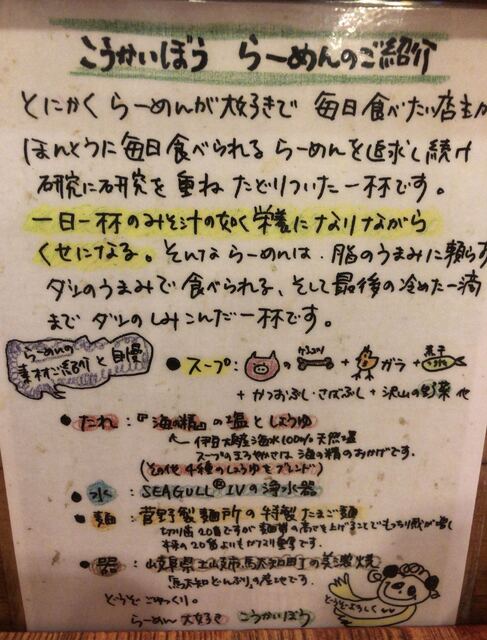 こうかいぼう らーめんのご紹介
とにかく らーめんが大好きで 毎日食べたい店主が
ほんとうに毎日食べられる らーめんを追求し続け
研究に研究を重ね たどりついた一杯です。
一日一杯のみそ汁の如く栄養になりながら
くせになる。そんな らーめんは、脂のうまみに頼らず
ダシのうまみで食べられる、そして最後の冷めた一滴
まで ダシのしみこんだ一杯です。
らーめんの
素材ご紹介と自慢
●スープ: の ゲンコツ + ガラ + 煮干
+かつおぶし・さばぶし+沢山の野菜 他
●たれ:『海の精』の塩としょうゆ
伊豆大島産海水100%天然塩
スープのまろやかさは海の精のおかげです。
(その他4種のしょうゆをブレンド)
●水:SEAGULL®IVの浄水器
●麺:菅野製麺所の特製たまご麺
切り歯20番ですが麺質の高さを上げることでもっちり感が増し
本来の20番よりも
●器:岐阜県土岐市駄知町の美濃焼
「駄知どんぶり」の産地です。
どうぞごゆっくり。
らーめん 大好き こうかいぼう
どうぞよろしく